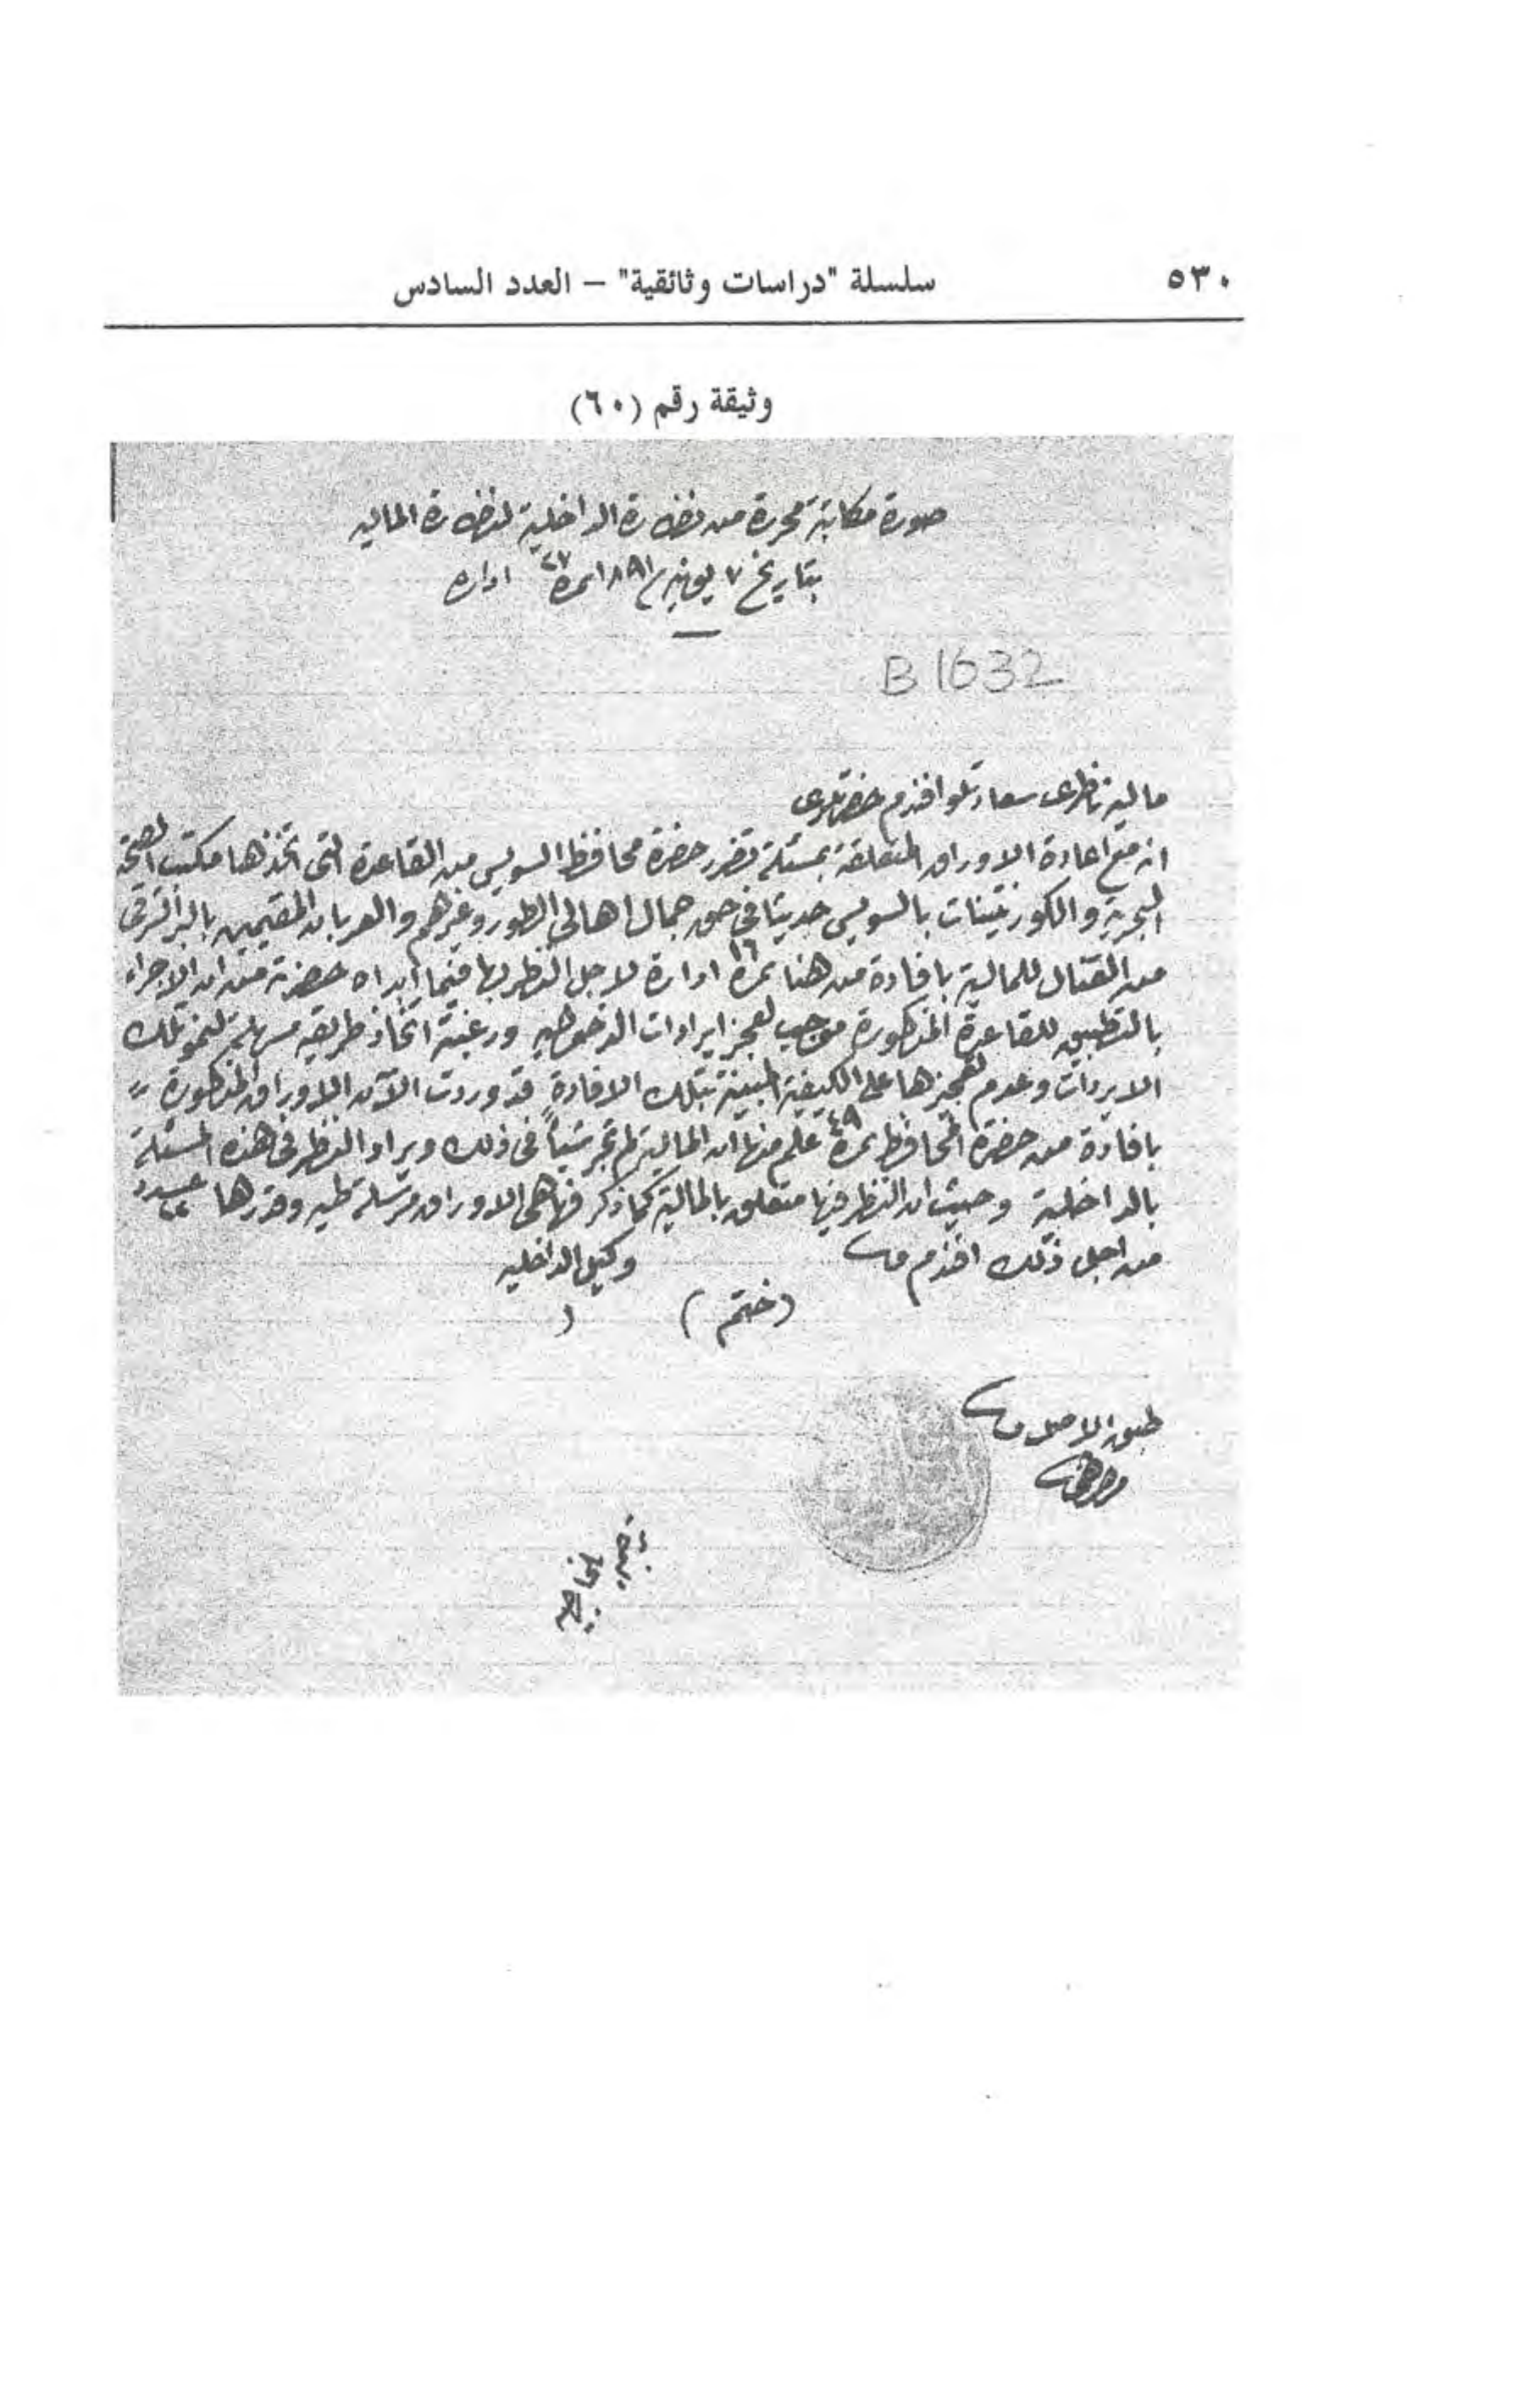 ٥٣٠
سلسلة "دراسات وثائقية" – العدد السادس
وثيقة رقم (٦٠)
صورة مكاتبة محررة من نظارة الداخلية لنظارة الماليه
بتاريخ ٧ يونيه ١٨٨١ نمرة ٢٧ اداره
B 1632
مالية ناظرى سعادتلو افندم حضرتلرى
انه مع اعادة الاوراق المتعلقة بمسئلة تضرر حضرة محافظ السويس من القاعدة التى اتخذها مكتب الصحة
البحرية والكورنتينات بالسويس حديثا فى حق جمال اهالى الطور وغيرهم والعربان المقيمين بالبر الشرقى
من القنال للمالية بافادة من هنا نمرة ١٦ ادارة لاجل النظر بها فيما ابداه حضرته من ان الاجراء
بالتطبيق للقاعدة المذكورة موجب لعجز ايرادات الدخوليه ورغبته اتخاذ طريقه مسهلة لنمو تلك
الايردات وعدم عجزها على الكيفية المبينة بتلك الافادة قد وردت الآن الاوراق المذكورة
بافادة من حضرة المحافظ نمرة ٤٨ علم منها ان المالية لم تجر شيأ فى ذلك ويراد النظر فى هذه المسئلة
بالداخلية وحيث ان النظر فيها متعلق بالمالية كما ذكر فها هى الاوراق مرسلة طيه وقدرها عدد
من اجل ذلك افندم
وكيل الداخليه
(ختم)
طبق الاصل